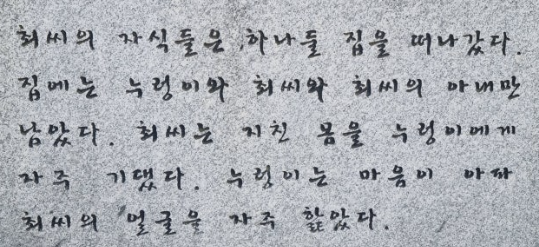 최씨의 자식들은 하나둘 집을 떠나갔다.
집에는 누렁이와 최씨와 최씨의 아내만
남았다. 최씨는 지친 몸을 누렁이에게
자주 기댔다. 누렁이는 마음이 아파
최씨의 얼굴을 자주 핥았다.